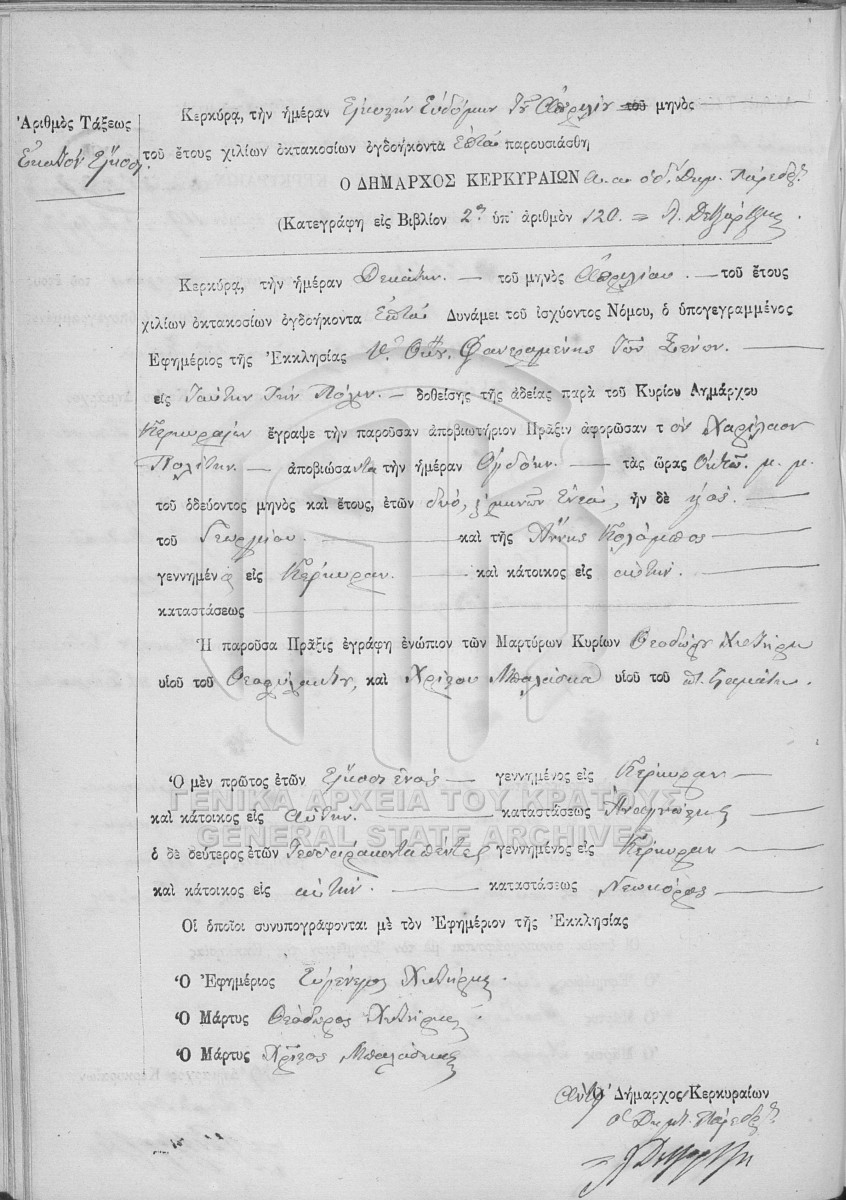 Ἀριθμὸς Τάξεως
Ἑκατὸν εἴκοσι
Κερκύρᾳ, τὴν ἡμέραν Εἰκοστὴν Ἑβδόμην τοῦ Ἀπριλίου τοῦ μηνὸς
τοῦ ἔτους χιλίων ὀκτακοσίων ὀγδοήκοντα Ἑπτὰ παρουσιάσθη
Ο ΔΗΜΑΡΧΟΣ ΚΕΡΚΥΡΑΙΩΝ α.α. ὁ δημ. Πάρεδρος
(Κατεγράφη εἰς Βιβλίον 2ον ὑπ' ἀριθμὸν 120. =
Κερκύρᾳ, τὴν ἡμέραν Δεκάτην. — τοῦ μηνὸς Ἀπριλίου. — τοῦ ἔτους
χιλίων ὀκτακοσίων ὀγδοήκοντα Ἑπτὰ Δυνάμει τοῦ ἰσχύοντος Νόμου, ὁ ὑπογεγραμμένος
Ἐφημέριος τῆς Ἐκκλησίας Φανερωμένης τῶν Ξένων. —
εἰς ταύτην τὴν Πόλιν. — δοθείσης τῆς ἀδείας παρὰ τοῦ Κυρίου Δημάρχου
Κερκυραίων ἔγραψε τὴν παροῦσαν ἀποβιωτήριον Πρᾶξιν ἀφορῶσαν τ ὸν Χαρίλαον
Πολίτην. — ἀποβιώσαντα τὴν ἡμέραν Ὀγδόην. — τὰς ὥρας Ὀκτὼ. μ. μ.
τοῦ ὁδεύοντος μηνὸς καὶ ἔτους, ἐτῶν δυὸ, μηνῶν ἐννέα, ἦν δὲ υἱὸς. —
τοῦ Γεωργίου. — καὶ τῆς Ἄννης Κολάμπος —
γεννημέν ος εἰς Κέρκυραν. — καὶ κάτοικος εἰς αὐτήν. —
καταστάσεως —
Ἡ παροῦσα Πρᾶξις ἐγράφη ἐνώπιον τῶν Μαρτύρων Κυρίων Θεοδώρου Χυτήρη
υἱοῦ τοῦ Θεοφυλάκτου, καὶ Χρίστου Μπαλάσκα υἱοῦ τοῦ
Ὁ μὲν πρῶτος ἐτῶν εἴκοσι ἑνὸς — γεννημένος εἰς Κέρκυραν —
καὶ κάτοικος εἰς αὐτήν. — καταστάσεως Ἀναγνώστης —
ὁ δὲ δεύτερος ἐτῶν τεσσαράκοντα πέντε γεννημένος εἰς Κέρκυραν
καὶ κάτοικος εἰς αὐτήν. — καταστάσεως Νεωκόρος —
Οἱ ὁποῖοι συνυπογράφονται μὲ τὸν Ἐφημέριον τῆς Ἐκκλησίας
Ὁ Ἐφημέριος Εὐγένιος Χυτήρης.
Ὁ Μάρτυς Θεόδωρος Χυτήρης
Ὁ Μάρτυς Χρίστος Μπαλάσκας
Ὁ Δήμαρχος Κερκυραίων
ὁ Δημ. Πάρεδρος
ΓΕΝΙΚΑ ΑΡΧΕΙΑ ΤΟΥ ΚΡΑΤΟΥΣ
GENERAL STATE ARCHIVES